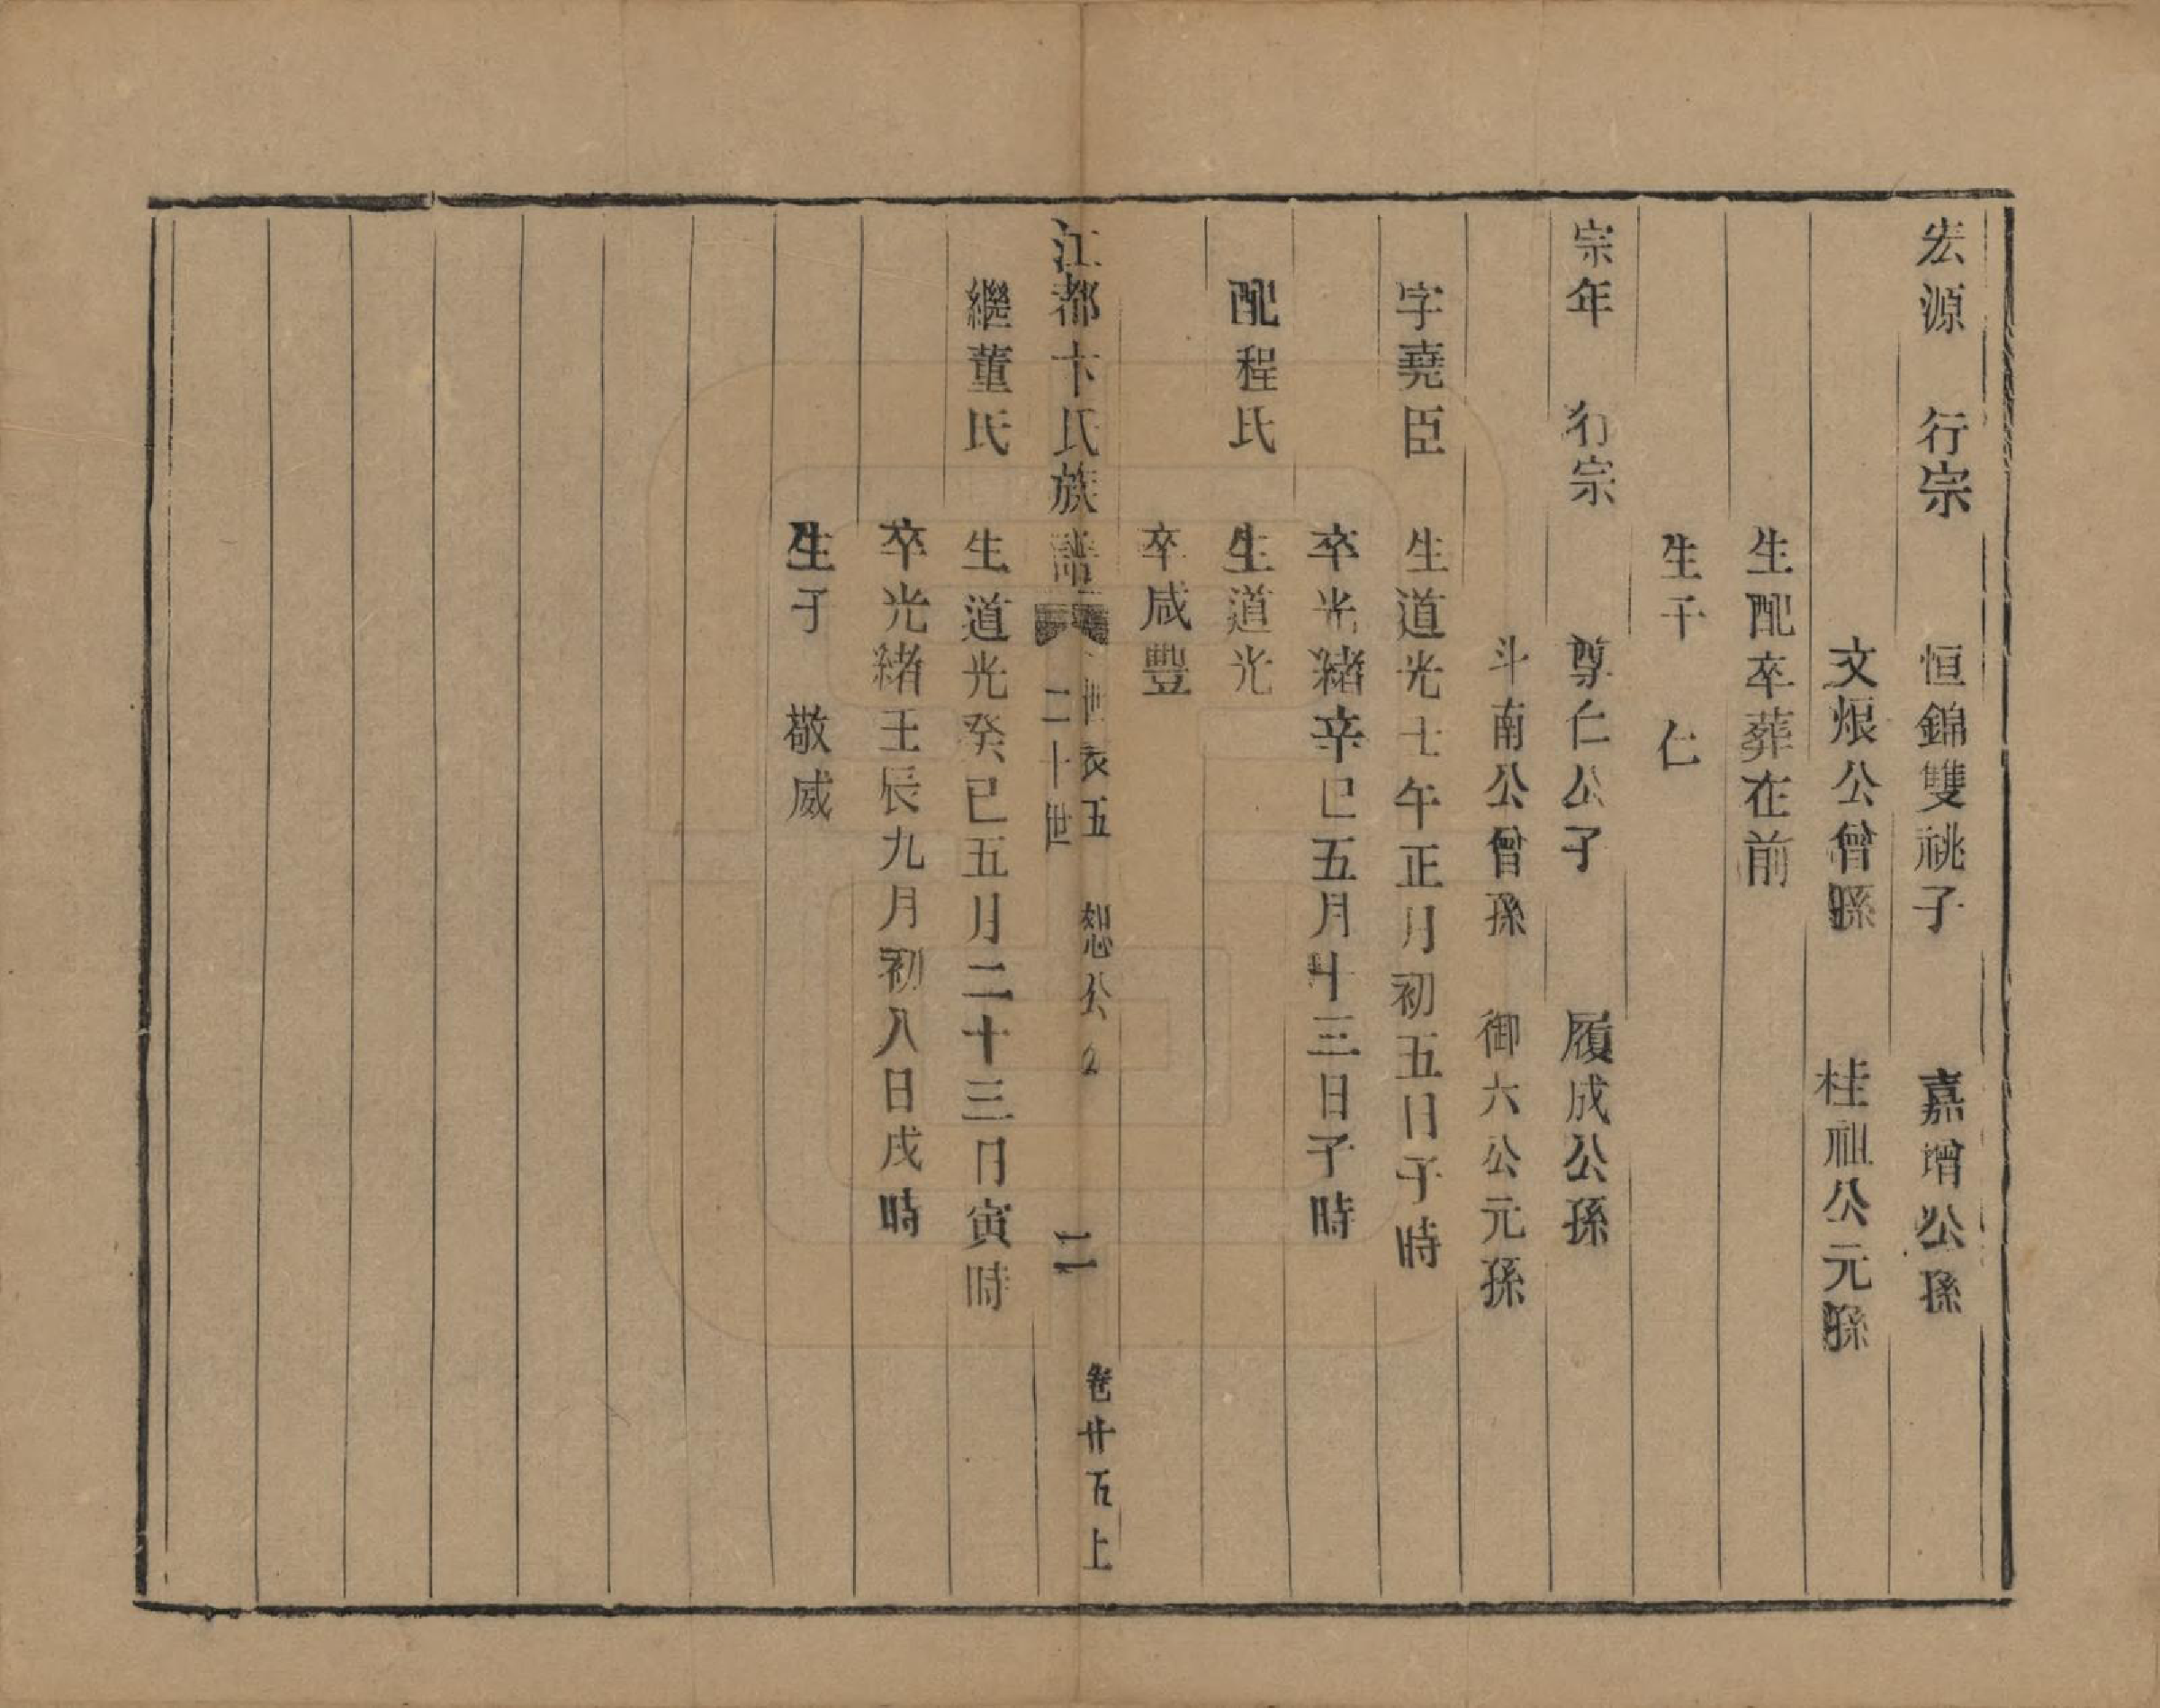 宏源　行宗　恒錦雙祧子　嘉增公孫
文烺公曾孫　桂祖公元孫
生配卒葬在前
生子　仁
宗年　行宗　尊仁公子　履成公孫
斗南公曾孫　御六公元孫
字堯臣　生道光十午正月初五日子時
卒光緒辛巳五月十三日子時
配程氏　生道光
卒咸豐
江都卞氏族譜　世表五　恕公　二十世　二　卷廿五上
繼董氏　生道光癸巳五月二十三日寅時
卒光緒壬辰九月初八日戌時
生子　敬威